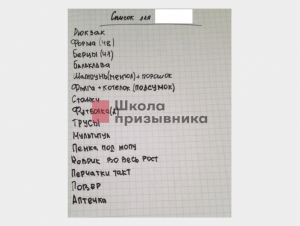 Список для
Рюкзак
Форма (48)
Берцы (41)
Балаклава
Шампунь (ментол) + порошок
Фляга + котелок (подсумок)
Стельки
Футболка
Трусы
Мультитул
Пенка под жопу
Коврик во весь рост
Перчатки такт
Повер
Аптечка
Школа
призывника